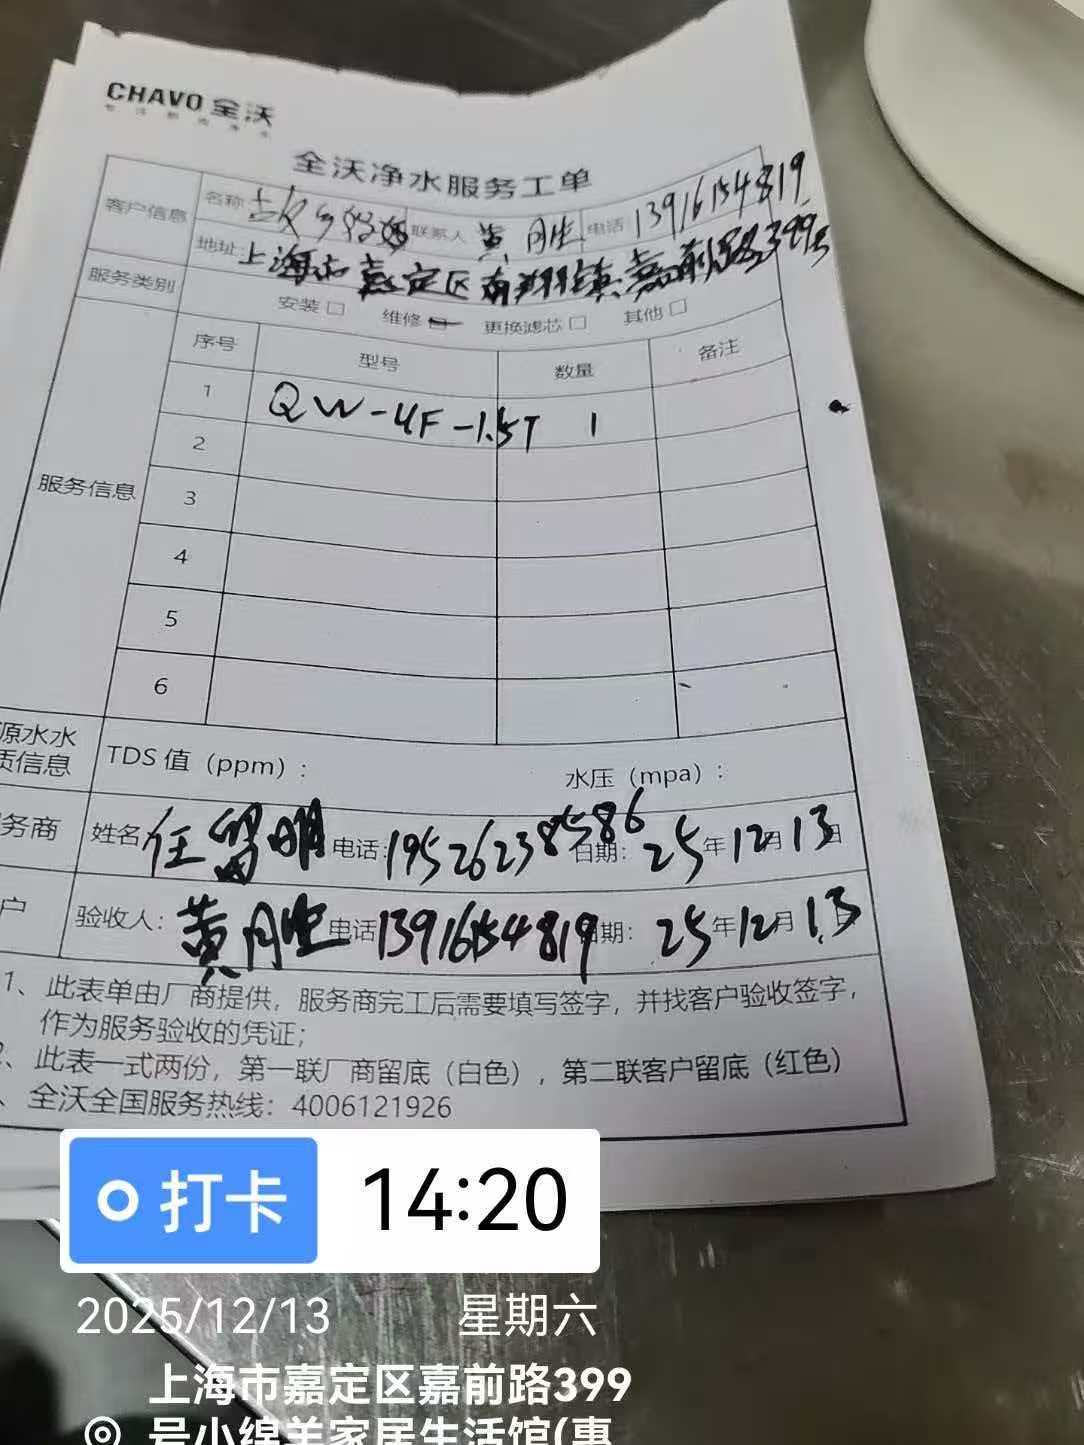 CHAVO 全沃
全沃净水服务工单
客户信息 名称 联系人 黄月生 电话 13916154819
地址: 上海市嘉定区南翔镇嘉前路399号
服务类别 安装□ 维修□ 更换滤芯□ 其他□
服务信息 序号 型号 数量 备注
1 QW-4F-1.5T 1
2
3
4
5
6
源水水
质信息 TDS 值（ppm）: 水压（mpa）:
务商 姓名 任留明 电话: 19526238586 日期: 25年12月13日
户 验收人: 黄月生 电话 13916154819 日期: 25年12月13
1、此表单由厂商提供，服务商完工后需要填写签字，并找客户验收签字，
作为服务验收的凭证；
、此表一式两份，第一联厂商留底（白色），第二联客户留底（红色）
、全沃全国服务热线: 4006121926
打卡 14:20
2025/12/13 星期六
上海市嘉定区嘉前路399
号小绵羊家居生活馆(惠